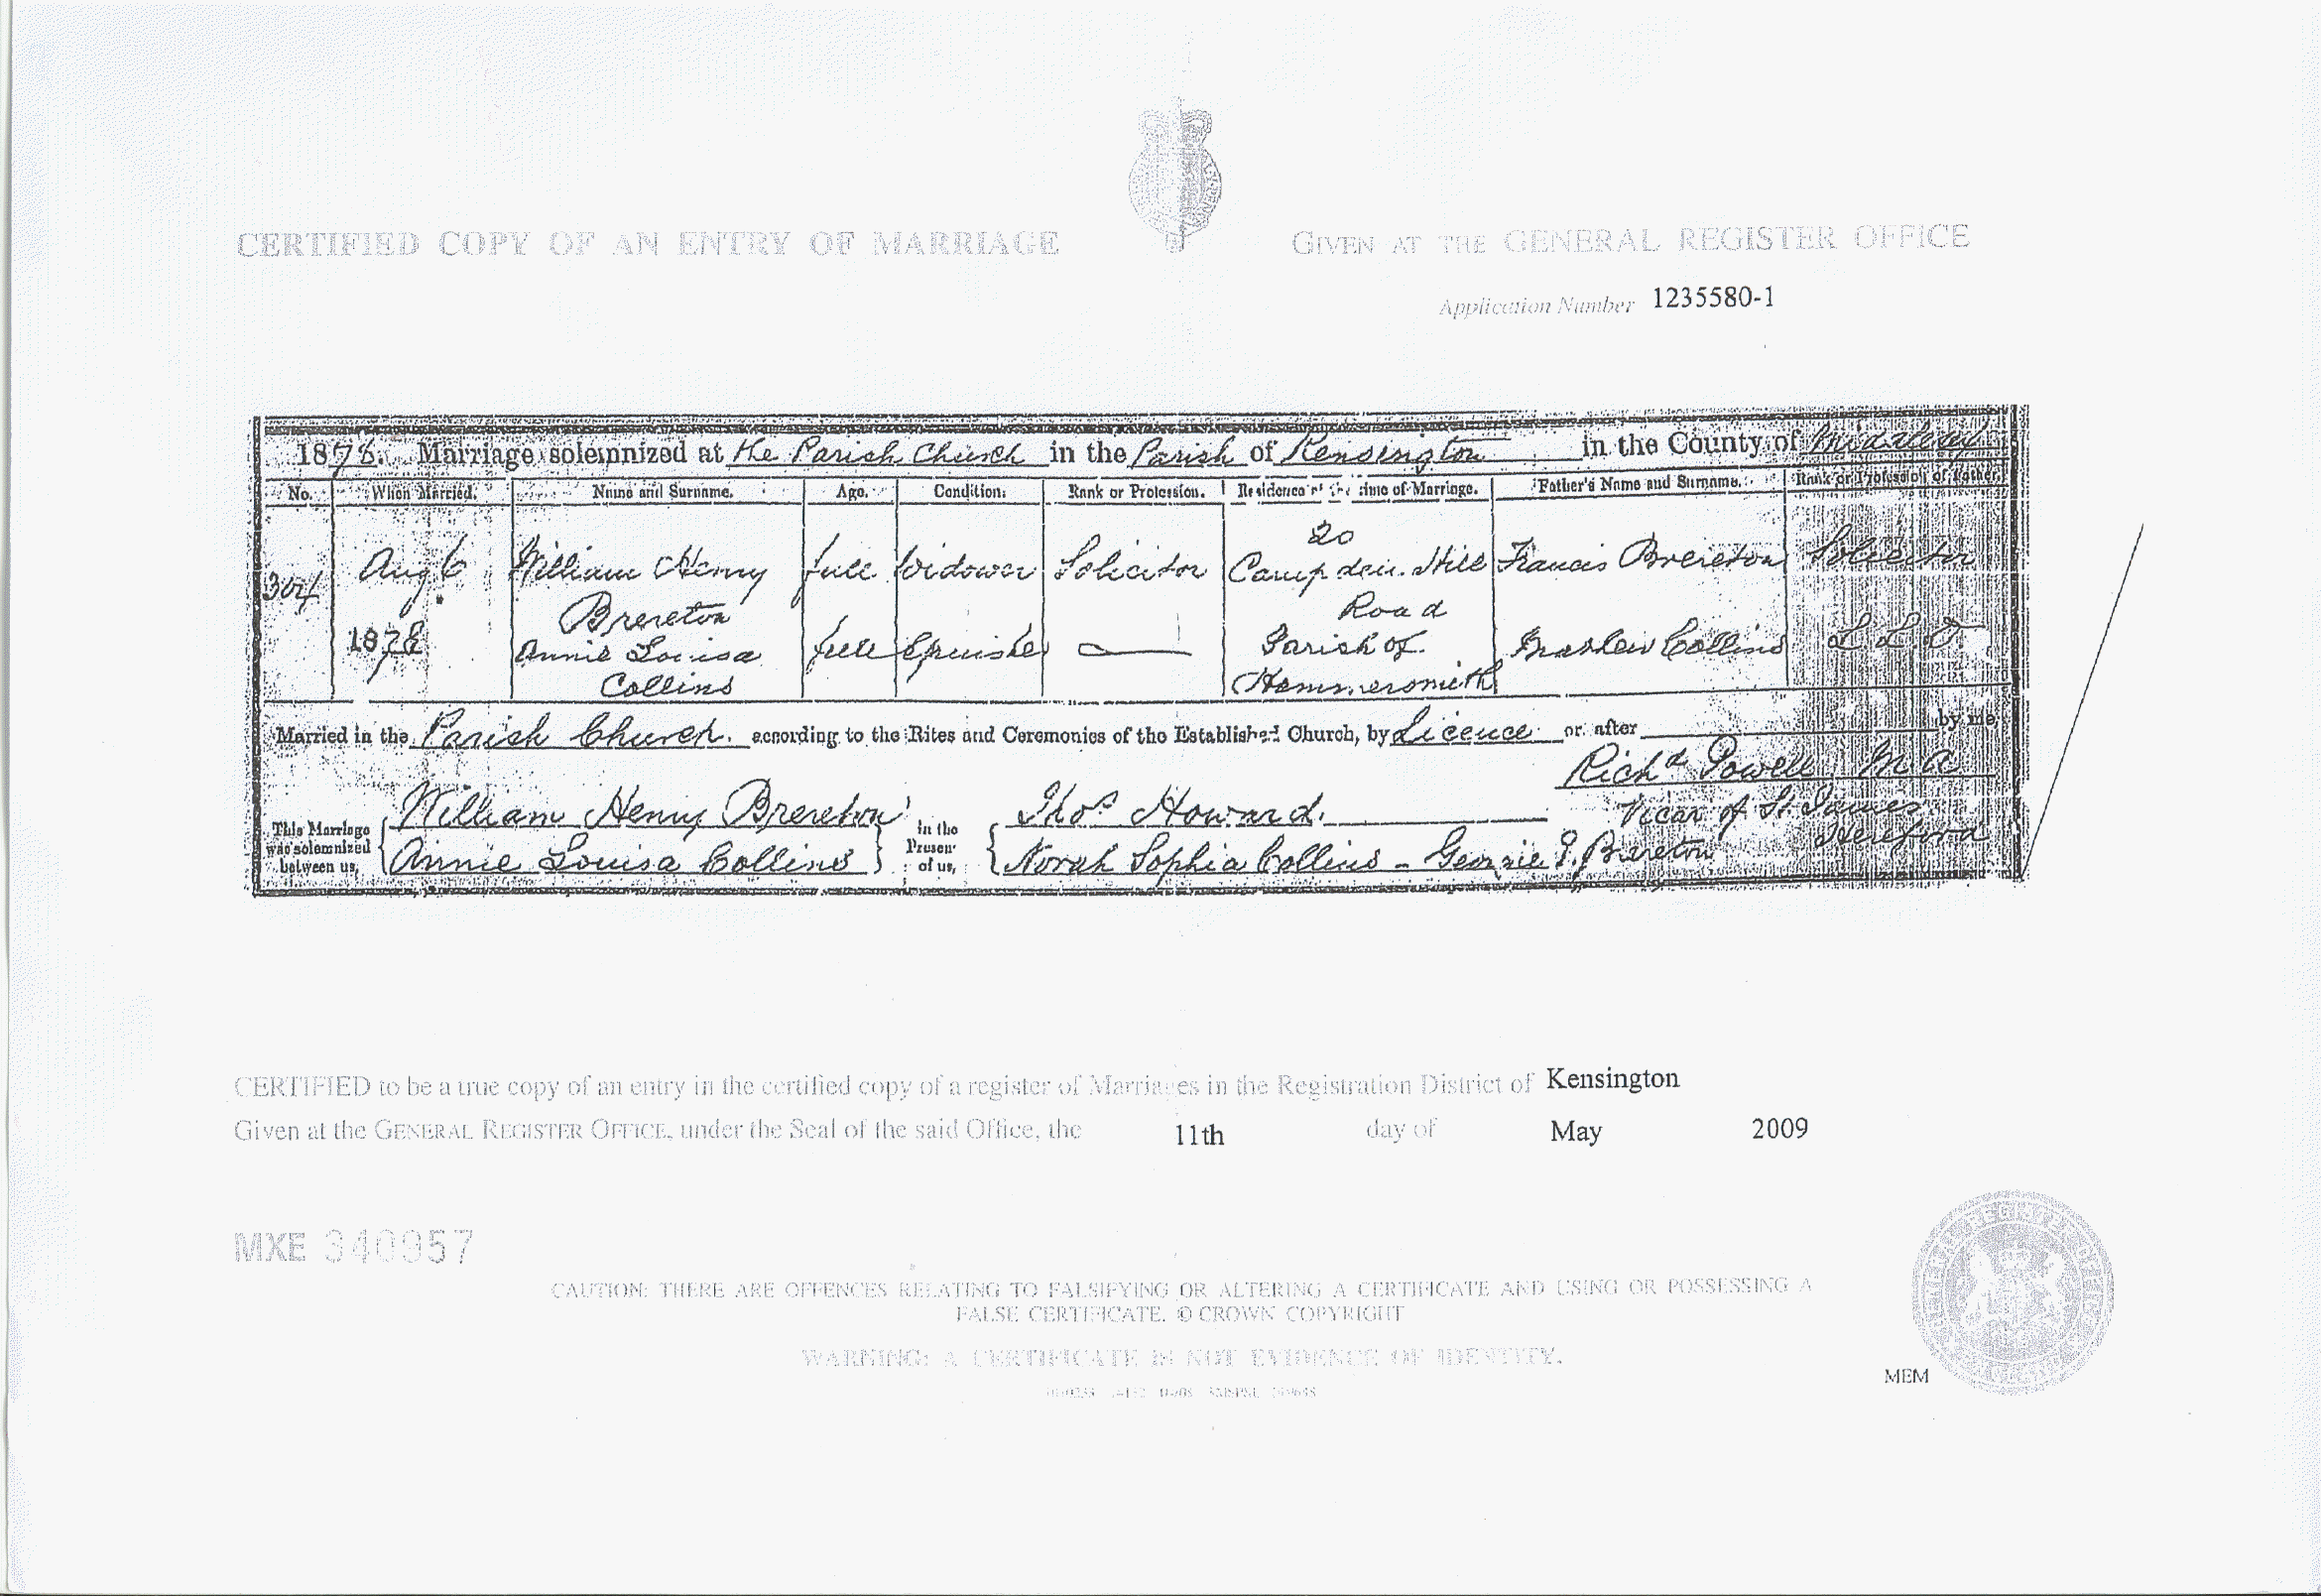 CERTIFIED COPY OF AN ENTRY OF MARRIAGE
GIVEN AT THE GENERAL REGISTER OFFICE
Application Number 1235580-1
1878. Marriage solemnized at the Parish Church in the Parish of Kensington in the County of Middlesex
No. When Married. Name and Surname. Age. Condition. Rank or Profession. Residence at the time of Marriage. Father's Name and Surname. Rank or Profession of Father.
304 Aug 6 1878 William Henry Brereton full Widower Solicitor 20 Campden Hill Road Francis Brereton Solicitor
Annie Louisa Collins full Spinster — Parish of Hammersmith Collins L.L.D.
Married in the Parish Church. according to the Rites and Ceremonies of the Established Church, by Licence or after by me,
Richd Powell M A
Vicar of St James Hereford
This Marriage was solemnized between us,
William Henry Brereton
Annie Louisa Collins
in the Presence of us,
Thos Howard.
Norah Sophia Collins - Georgie Brereton
CERTIFIED to be a true copy of an entry in the certified copy of a register of Marriages in the Registration District of Kensington
Given at the GENERAL REGISTER OFFICE, under the Seal of the said Office, the 11th day of May 2009
MXE 340957
CAUTION: THERE ARE OFFENCES RELATING TO FALSIFYING OR ALTERING A CERTIFICATE AND USING OR POSSESSING A
FALSE CERTIFICATE. © CROWN COPYRIGHT
WARNING: A CERTIFICATE IS NOT EVIDENCE OF IDENTITY.
MEM